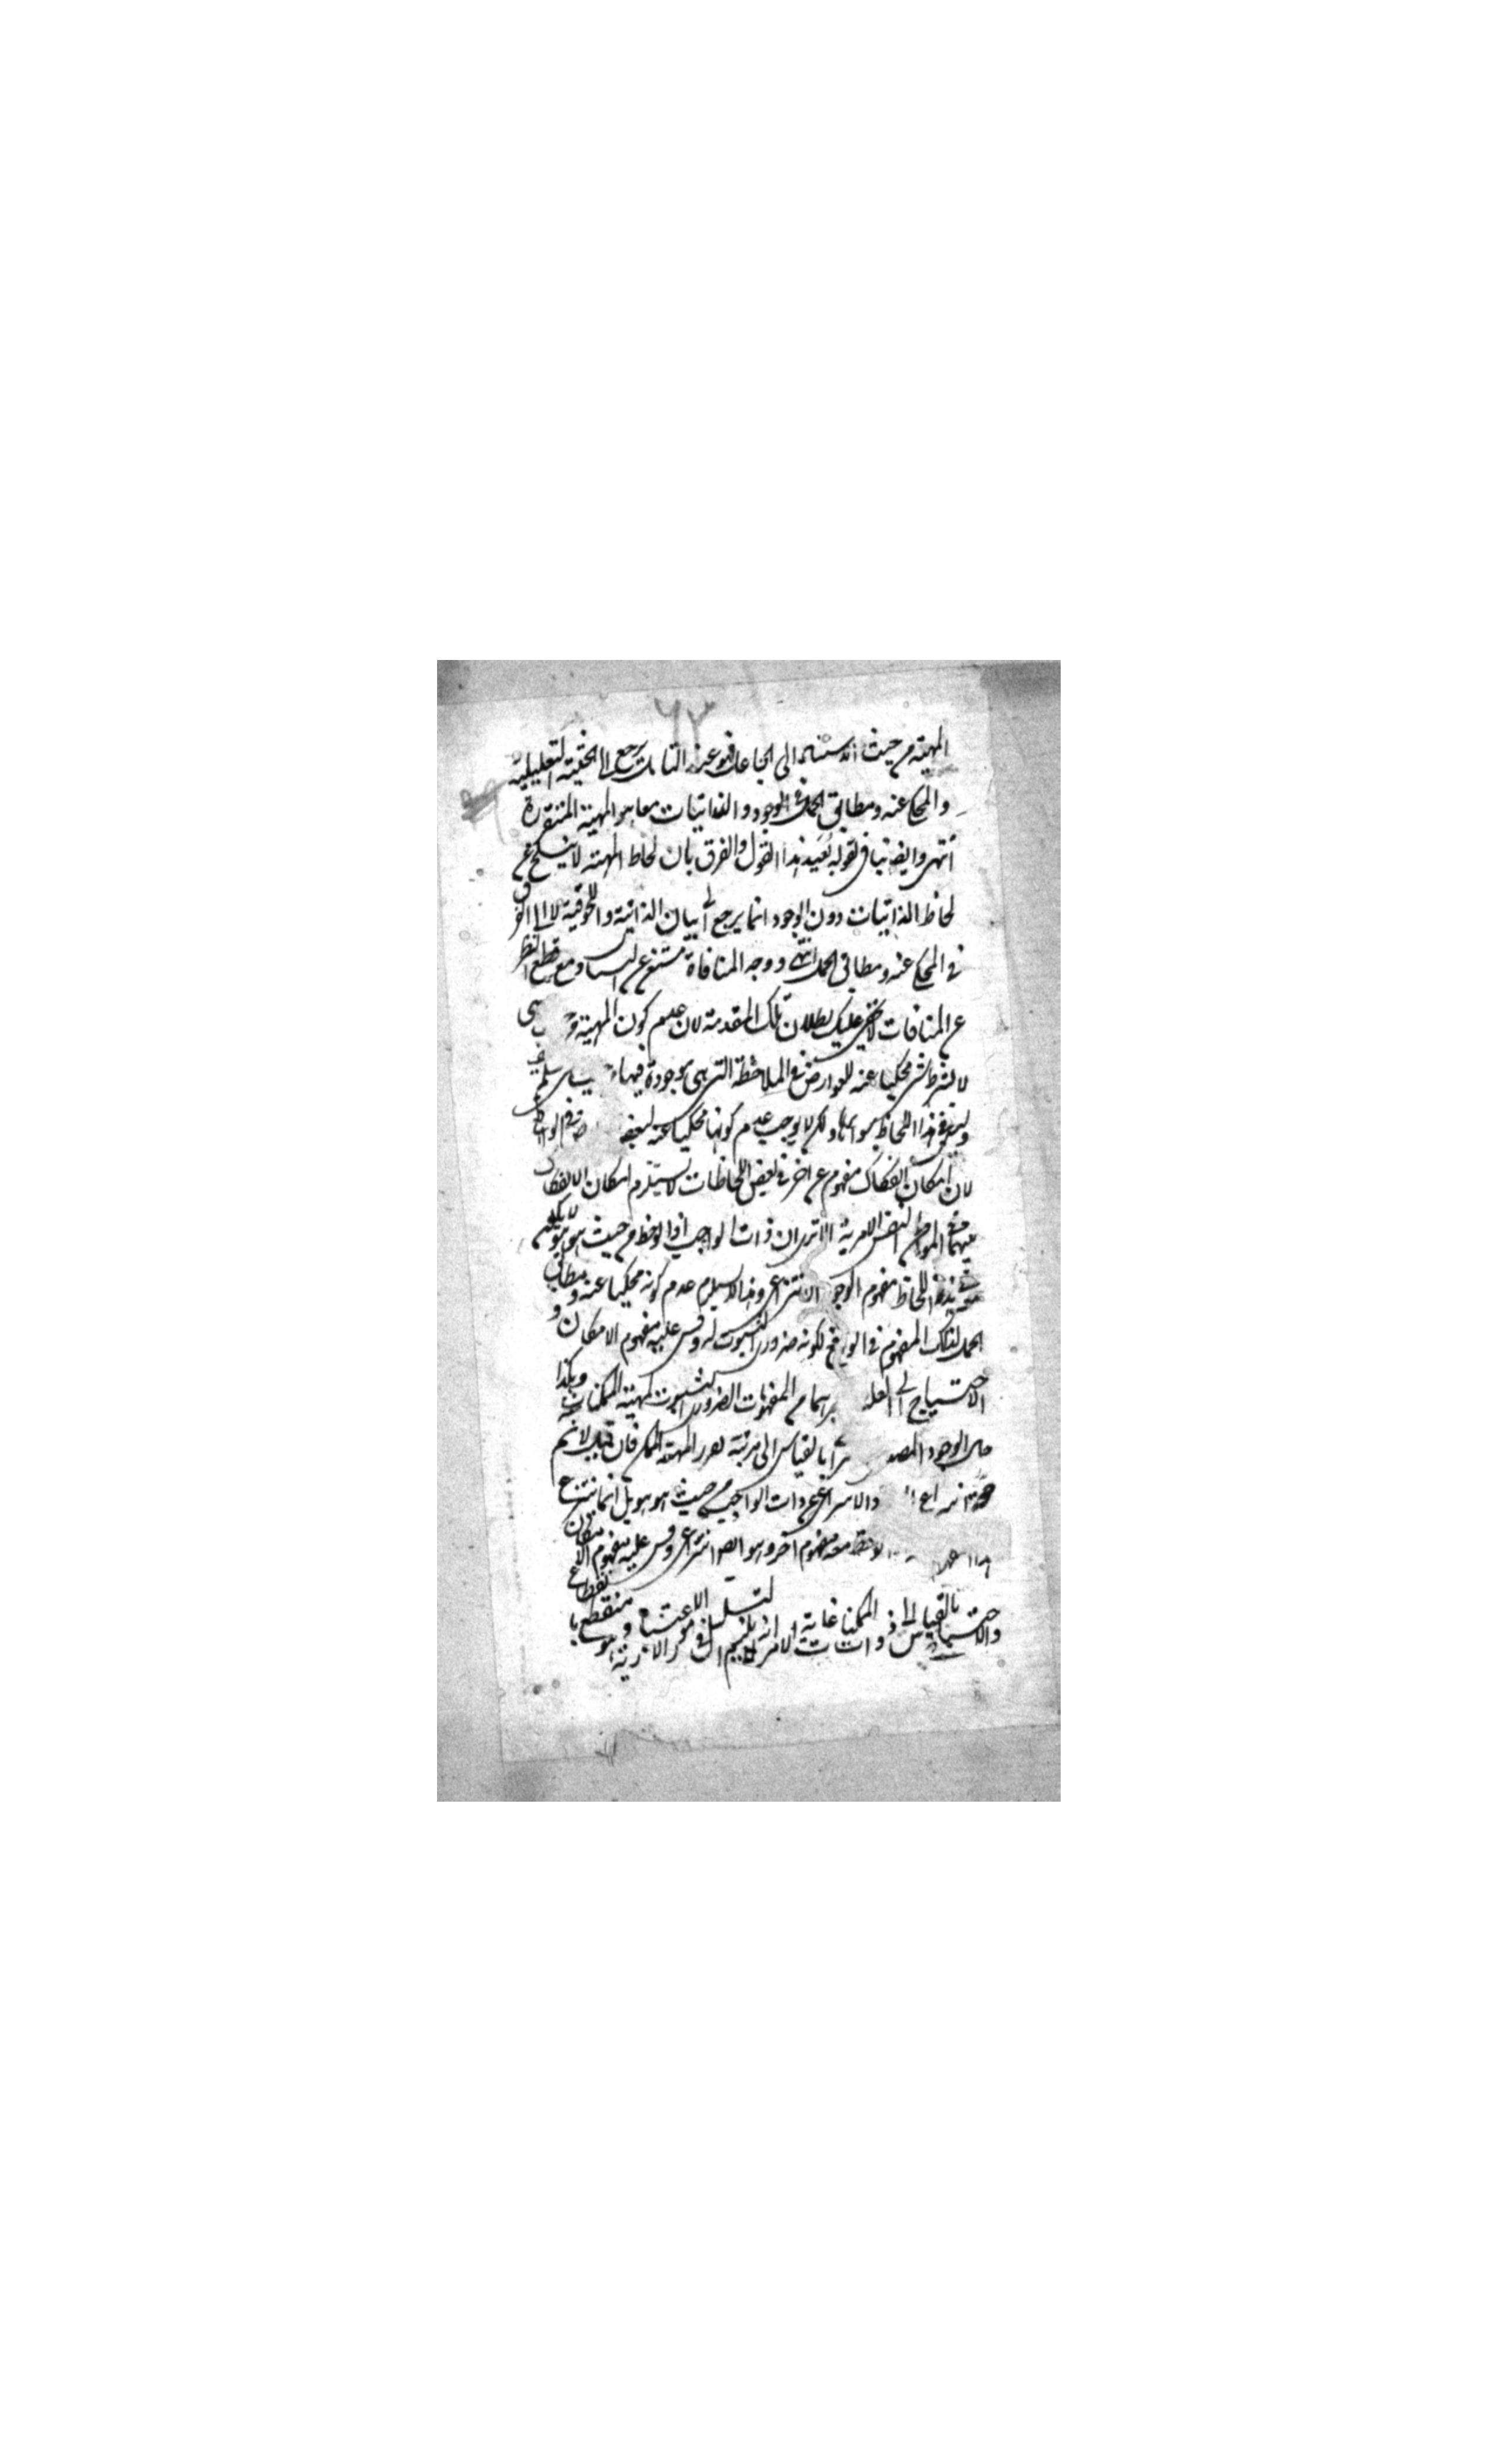 ٦٣
المهية من حيث استنادها الى الجاعل فهو عند التأمل يرجع الى الحيثية التعليلية
والمحكى عنه ومطابق الحمل فى الوجود والذاتيات معا هو المهية المتقررة
انتهى وايضا ينافى قوله بعيد هذا القول والفرق بان لحاظ المهية لا ينسلخ عن
لحاظ الذاتيات دون الوجود انما يرجع الى بيان الذاتية واللحوقية لا الى الفرق
فى المحكى عنه ومطابق الحمل انتهى ووجه المنافاة مستغن عن البيان ومع قطع النظر
عن المنافات لا يخفى عليك بطلان تلك المقدمة لان عدم كون المهية
لا بشرط شىء محكيا عنه للعوارض فى الملاحظة التى هى موجودة فيها مسلم
وليس فى هذا اللحاظ سواها ولكن لا يوجب عدم كونها محكيا عنه لبعض فى الواقع
لان امكان انفكاك مفهوم عن اخر فى بعض اللحاظات لا يستلزم امكان الانفكاك
بينهما فى المواطن النفس الامرية الا ترى ان ذات الواجب اذا لوحظ من حيث هو هو لا يكون
فى هذا اللحاظ مفهوم الوجود الانتزاعى وهذا لا يستلزم عدم كونه محكيا عنه ومطابق
الحمل لذلك المفهوم فى الواقع لكونه ضرورى الثبوت له وقس عليه مفهوم الامكان و
الاحتياج الى العلة من المفهومات الضرورى الثبوت لمهية الممكنات وهكذا
حال الوجود بالقياس الى مرتبة تقرر المهية الممكن فان قلت لا نم
ذات الواجب من حيث هو هو بل انما ينتزع
معه مفهوم آخر وهو ايضا انتزاعى وقس عليه مفهوم الامكان
والاحتياج بالقياس الى ذوات الممكنات غاية الامر انه يلزم التسلسل فى الامور الاعتبارية وهو منقطع بانقطاع